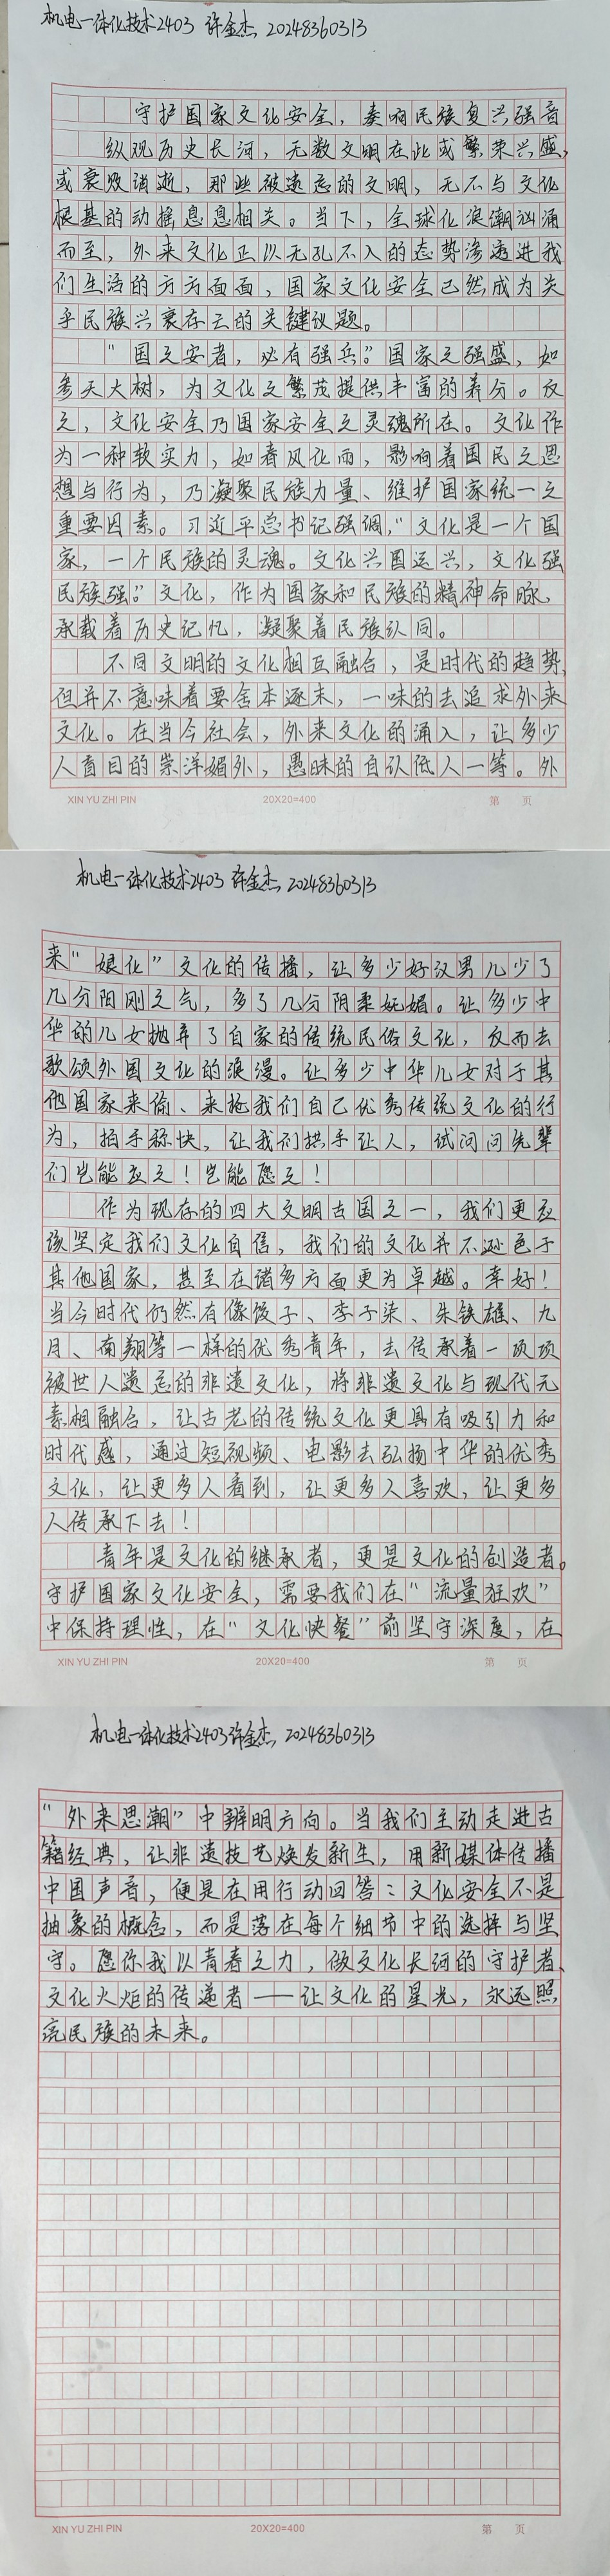 机电一体化技术2403 许金杰 20248360313
守护国家文化安全，奏响民族复兴强音
纵观历史长河，无数文明在此或繁荣兴盛，
或衰败消逝，那些被遗忘的文明，无不与文化
根基的动摇息息相关。当下，全球化浪潮汹涌
而至，外来文化正以无孔不入的态势渗透进我
们生活的方方面面，国家文化安全已然成为关
乎民族兴衰存亡的关键议题。
“国之安者，必有强兵。”国家之强盛，如
参天大树，为文化之繁茂提供丰富的养分。反
之，文化安全乃国家安全之灵魂所在。文化作
为一种软实力，如春风化雨，影响着国民之思
想与行为，乃凝聚民族力量、维护国家统一之
重要因素。习近平总书记强调，“文化是一个国
家，一个民族的灵魂。文化兴国运兴，文化强
民族强。”文化，作为国家和民族的精神命脉，
承载着历史记忆，凝聚着民族认同。
不同文明的文化相互融合，是时代的趋势，
但并不意味着要舍本逐末，一味的去追求外来
文化。在当今社会，外来文化的涌入，让多少
人盲目的崇洋媚外，愚昧的自认低人一等。外
XIN YU ZHI PIN 20X20=400 第 页
机电一体化技术2403 许金杰 20248360313
来“娘化”文化的传播，让多少好汉男儿少了
几分阳刚之气，多了几分阴柔妩媚。让多少中
华的儿女抛弃了自家的传统民俗文化，反而去
歌颂外国文化的浪漫。让多少中华儿女对于其
他国家来偷、来抢我们自己优秀传统文化的行
为，拍手称快，让我们拱手让人，试问问先辈
们岂能应之！岂能愿之！
作为现存的四大文明古国之一，我们更应
该坚定我们文化自信，我们的文化并不逊色于
其他国家，甚至在诸多方面更为卓越。幸好！
当今时代仍然有像饺子、李子柒、朱铁雄、九
月、南翔等一样的优秀青年，去传承着一项项
被世人遗忘的非遗文化，将非遗文化与现代元
素相融合，让古老的传统文化更具有吸引力和
时代感，通过短视频、电影去弘扬中华的优秀
文化，让更多人看到，让更多人喜欢，让更多
人传承下去！
青年是文化的继承者，更是文化的创造者。
守护国家文化安全，需要我们在“流量狂欢”
中保持理性，在“文化快餐”前坚守深度，在
XIN YU ZHI PIN 20X20=400 第 页
机电一体化技术2403许金杰 20248360313
“外来思潮”中辨明方向。当我们主动走进古
籍经典，让非遗技艺焕发新生，用新媒体传播
中国声音，便是在用行动回答：文化安全不是
抽象的概念，而是落在每个细节中的选择与坚
守。愿你我以青春之力，做文化长河的守护者、
文化火炬的传递者——让文化的星光，永远照
亮民族的未来。
XIN YU ZHI PIN 20X20=400 第 页